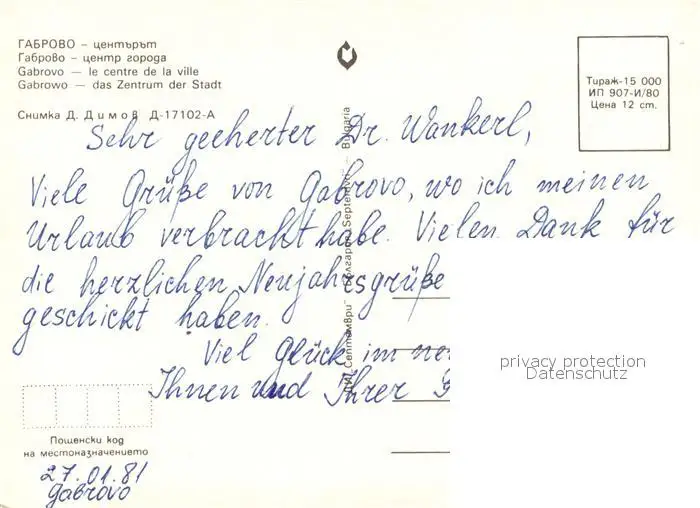 ГАБРОВО – центърът
Габрово – центр города
Gabrovo — le centre de la ville
Gabrowo — das Zentrum der Stadt
Снимка Д. Димов Д-17102-А
Тираж-15 000
ИП 907-И/80
Цена 12 ст.
Sehr geeherter Dr. Wankerl,
Viele Grüße von Gabrovo, wo ich meinen
Urlaub verbracht habe. Vielen Dank für
die herzlichen Neujahrsgrüße
geschickt haben.
Viel Glück im
Ihnen und Ihrer
ДИ „Септември“ — България Septemvri — Bulgaria
privacy protection
Datenschutz
Пощенски код
на местоназначението
27.01.81
Gabrovo